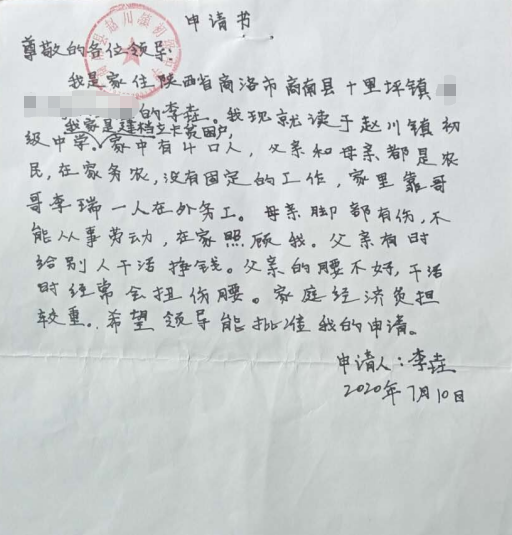 申请书
尊敬的各位领导:
我是家住陕西省商洛市商南县十里坪镇
的李垚。我现就读于赵川镇初
我家是建档立卡贫困户,
级中学。家中有4口人,父亲和母亲都是农
民,在家务农,没有固定的工作,家里靠哥
哥李瑞一人在外务工。母亲脚部有伤,不
能从事劳动,在家照顾我。父亲有时
给别人干活挣钱。父亲的腰不好,干活
时经常会扭伤腰。家庭经济负担
较重。希望领导能批准我的申请。
申请人:李垚
2020年7月10日